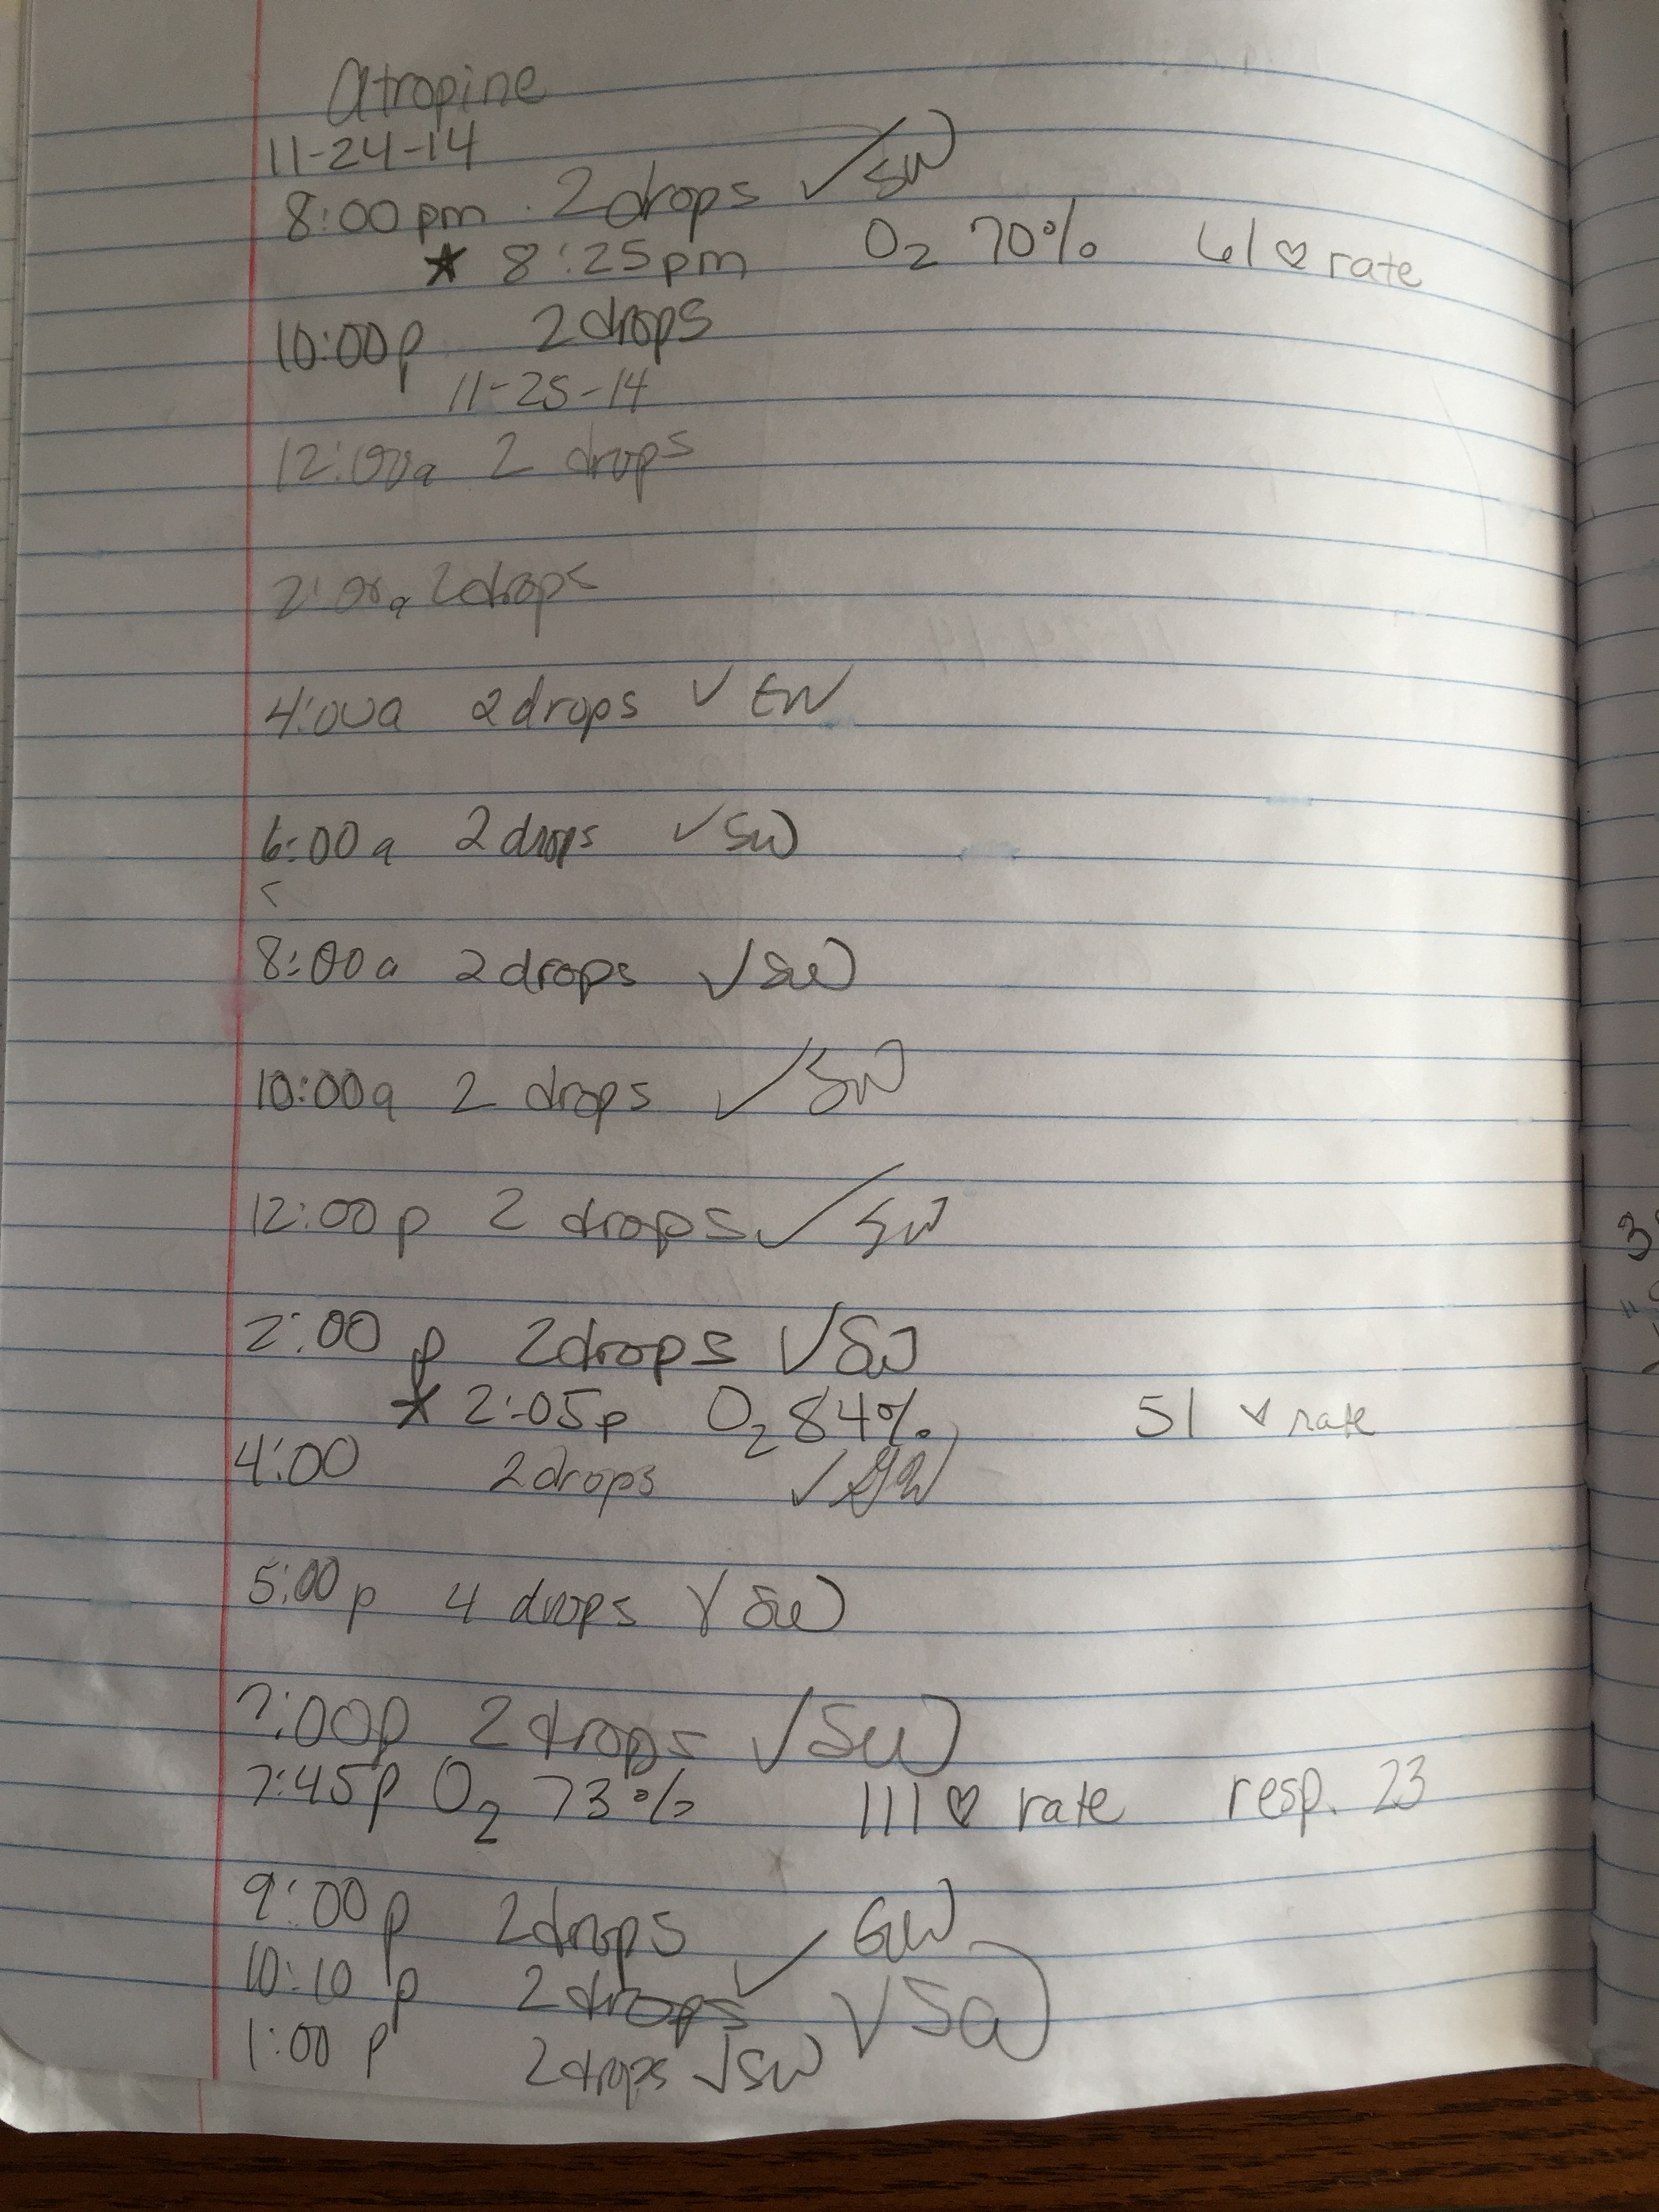 Atropine
11-24-14
8:00pm 2drops ✓ SW
★ 8:25pm O2 70% 61 ♡ rate
10:00p 2drops
11-25-14
12:00a 2 drops
2:00a 2drops
4:00a 2drops ✓ EW
6:00a 2 drops ✓ SW
8:00a 2drops ✓ SW
10:00a 2 drops ✓ SW
12:00p 2 drops ✓ SW
2:00p 2drops ✓ SW
★ 2:05p O2 84% 51 ♡ rate
4:00 2drops ✓
5:00p 4 drops ✓ SW
7:00p 2drops ✓ SW
7:45p O2 73% 111 ♡ rate resp. 23
9:00p 2drops ✓ GW
10:10p 2drops ✓ SW
1:00 p 2drops ✓ SW